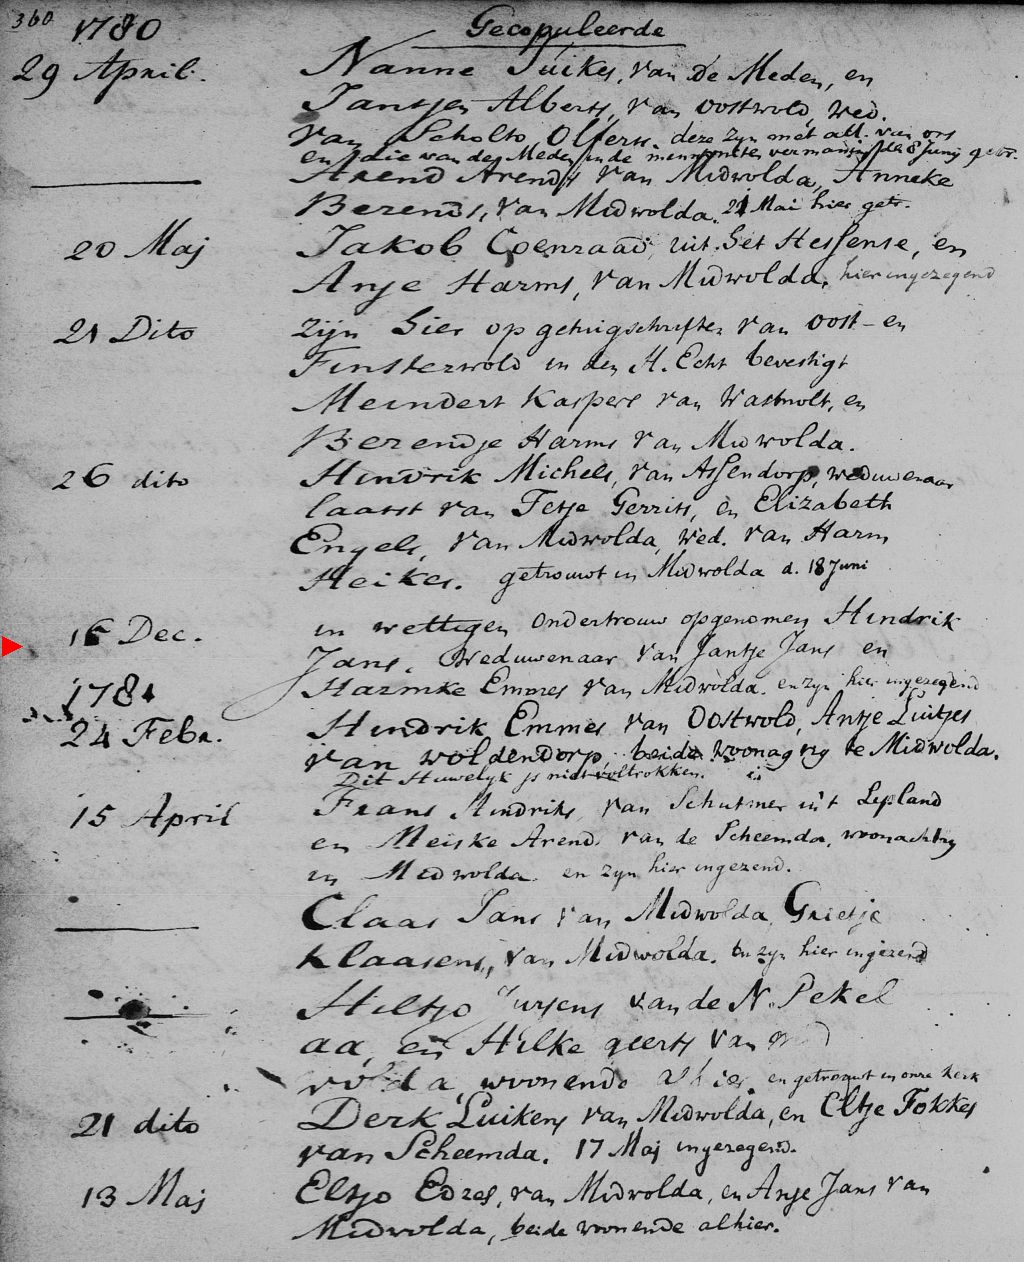 360 1780 Gecopuleerde
29 April. Nanne Tuikes, van De Meden, en
Jantjen Alberts, van Oostwold, Wed.
van Scholto Olferts. deze zyn met att. van ons
en die van de Meden in de vermaning den 8 Junij getr.
Arend Arends van Midwolda, Anneke
Berends, van Midwolda. 21 Mai hier getr.
20 Maj Jakob Coenraad, uit het Hessense, en
Anje Harms, van Midwolda. hier ingezegend
21 Dito zijn hier op getuigschriften van Oost- en
Finsterwold in den H. Echt bevestigt
Meindert Kaspers van en
Berendje Harms van Midwolda.
26 dito Hindrik Michels, van Assendorp, weduwenaar
laatst van Fetje Gerrits, en Elizabeth
Engels, van Midwolda, Wed. van Harm
Heikes. getrouwt in Midwolda d. 18 Juni
16 Dec. in wettigen Ondertrouw opgenomen Hindrik
Jans, Weduwenaar van Jantje Jans en
Harmke Emmes van Midwolda. en zyn hier ingezegend
1781
24 Febr. Hindrik Emmes van Oostwold, Antje Luitjes
van Woldendorp, beide woonagtig te Midwolda.
Dit Huwelyk is niet voltrokken.
15 April Frans Hindriks, van uit Lipland
en Meiske Arends van de Scheemda, woonachtig
in Midwolda. en zyn hier ingezend.
Claas Jans van Midwolda, Grietje
Klaasens, van Midwolda. en zyn hier ingezend
Hiltjo Jurjens van de N. Pekel
aa, en Hilke geerts van Mid
wolda, woonende alhier. en getrouwt in onze kerk
21 dito Derk Luikens van Midwolda, en Eltje Fokkes
van Scheemda. 17 Maj ingezegend.
13 Maj Eltjo Edzes, van Midwolda, en Anje Jans van
Midwolda, beide woonende alhier.